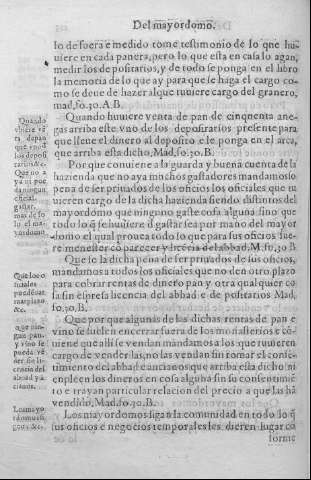 Del mayordomo.
lo de fuera e medido tome testimonio de lo que hu-
uiere en cada panera, pero lo que esta en casa lo agan,
medir los depositarios, y de todo se ponga en el libro
la memoria de lo que ay para que se haga el cargo co-
mo se deue de hazer al que tuuiere cargo del granero,
mad, fo. 30. A. B.
Quando huuiere venta de pan de cinquenta ane-
gas arriba este vno de los depositarios presente para
que lleue el dinero al deposito e le ponga en el arca,
que arriba esta dicho, Mad, fo, 30. B.
Por que conuiene a la guarda y buena cuenta de la
hazienda que no aya muchos gastadores mandamos lo
pena de ser priuados de los oficios los oficiales que tu
uieren cargo de la dicha hazienda siendo distintos del
mayordomo que ninguno gaste cosa alguna sino que
todo lo q̃ se huuiere d gastar sea por mano del mayor
domo el qual prouea todo lo que para sus oficios fue-
re menester cõ parecer y licẽcia del abbad. M. fo, 30 B.
Que so la dicha pena de ser priuados de sus oficios,
mandamos a todos los oficiales que no den otro plazo
para cobrar rentas de dinero pan y otra qualquier co
sa sin espresa licencia del abbad e de positarios Mad,
fo. 30. B,
Que por que algunas de las dichas rentas de pan e
vino se suelen encerrar fuera de los monasterios e cõ-
uiene que alli se vendan mandamos a los que tuuieren
cargo de vender las, no las vendan sin tomar el consẽ-
timiento del abbad e ancianos que arriba esta dicho ni
enpleen los dineros en cosa alguna sin su consentimiẽ
to e trayan particular relacion del precio a que las hã
vendido, Mad. fo. 30. B.
Los mayordomos sigan la comunidad en todo lo q̃
sus oficios e negocios temporales les dieren lugar co
forme
Quando
vbiere vẽ
ta depan
que vno d
los deposi
Que no a
ya ni pue
da ningun
oficial
gastar,
mas de so
lo el ma-
yordomo
&c.
Los mayo